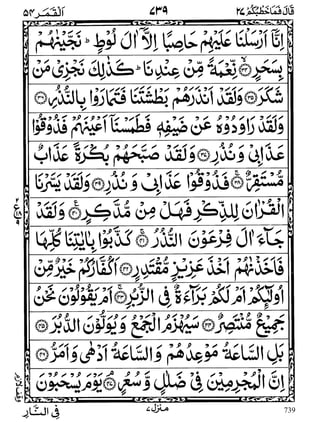 قَالَ فَمَا خَطْبُكُمْ ٢٧ ٧٣٩ اَلْقَمَر ٥٤
اِنَّاۤ اَرْسَلْنَا عَلَيْهِمْ حَاصِبًا اِلَّاۤ اٰلَ لُوْطٍ ؕ نَجَّيْنٰهُمْ
بِسَحَرٍ ۙ‏﴿۳۴﴾ نِّعْمَةً مِّنْ عِنْدِنَا ؕ كَذٰلِكَ نَجْزِىْ مَنْ
شَكَرَ ﴿۳۵﴾ وَلَقَدْ اَنْذَرَهُمْ بَطْشَتَنَا فَتَمَارَوْا بِالنُّذُرِ ﴿۳۶﴾
وَلَقَدْ رَاوَدُوْهُ عَنْ ضَيْفِهٖ فَطَمَسْنَاۤ اَعْيُنَهُمْ فَذُوْقُوْا
عَذَابِىْ وَنُذُرِ ﴿۳۷﴾ وَلَقَدْ صَبَّحَهُمْ بُكْرَةً عَذَابٌ
مُّسْتَقِرٌّ ﴿۳۸﴾ فَذُوْقُوْا عَذَابِىْ وَنُذُرِ ﴿۳۹﴾ وَلَقَدْ يَسَّرْنَا
الْقُرْاٰنَ لِلذِّكْرِ فَهَلْ مِنْ مُّدَّكِرٍ ﴿۴۰﴾ وَلَقَدْ
جَآءَ اٰلَ فِرْعَوْنَ النُّذُرُ ﴿۴۱﴾ كَذَّبُوْا بِاٰيٰتِنَا كُلِّهَا
فَاَخَذْنٰهُمْ اَخْذَ عَزِيْزٍ مُّقْتَدِرٍ ﴿۴۲﴾ اَكُفَّارُكُمْ خَيْرٌ مِّنْ
اُولٰٓئِكُمْ اَمْ لَكُمْ بَرَآءَةٌ فِى الزُّبُرِ ﴿۴۳﴾ اَمْ يَقُوْلُوْنَ نَحْنُ
جَمِيْعٌ مُّنْتَصِرٌ ﴿۴۴﴾ سَيُهْزَمُ الْجَمْعُ وَيُوَلُّوْنَ الدُّبُرَ ﴿۴۵﴾
بَلِ السَّاعَةُ مَوْعِدُهُمْ وَالسَّاعَةُ اَدْهٰى وَاَمَرُّ ﴿۴۶﴾
اِنَّ الْمُجْرِمِيْنَ فِىْ ضَلٰلٍ وَّسُعُرٍ ﴿۴۷﴾ يَوْمَ يُسْحَبُوْنَ
فِى النَّارِ منزل ٧ 739